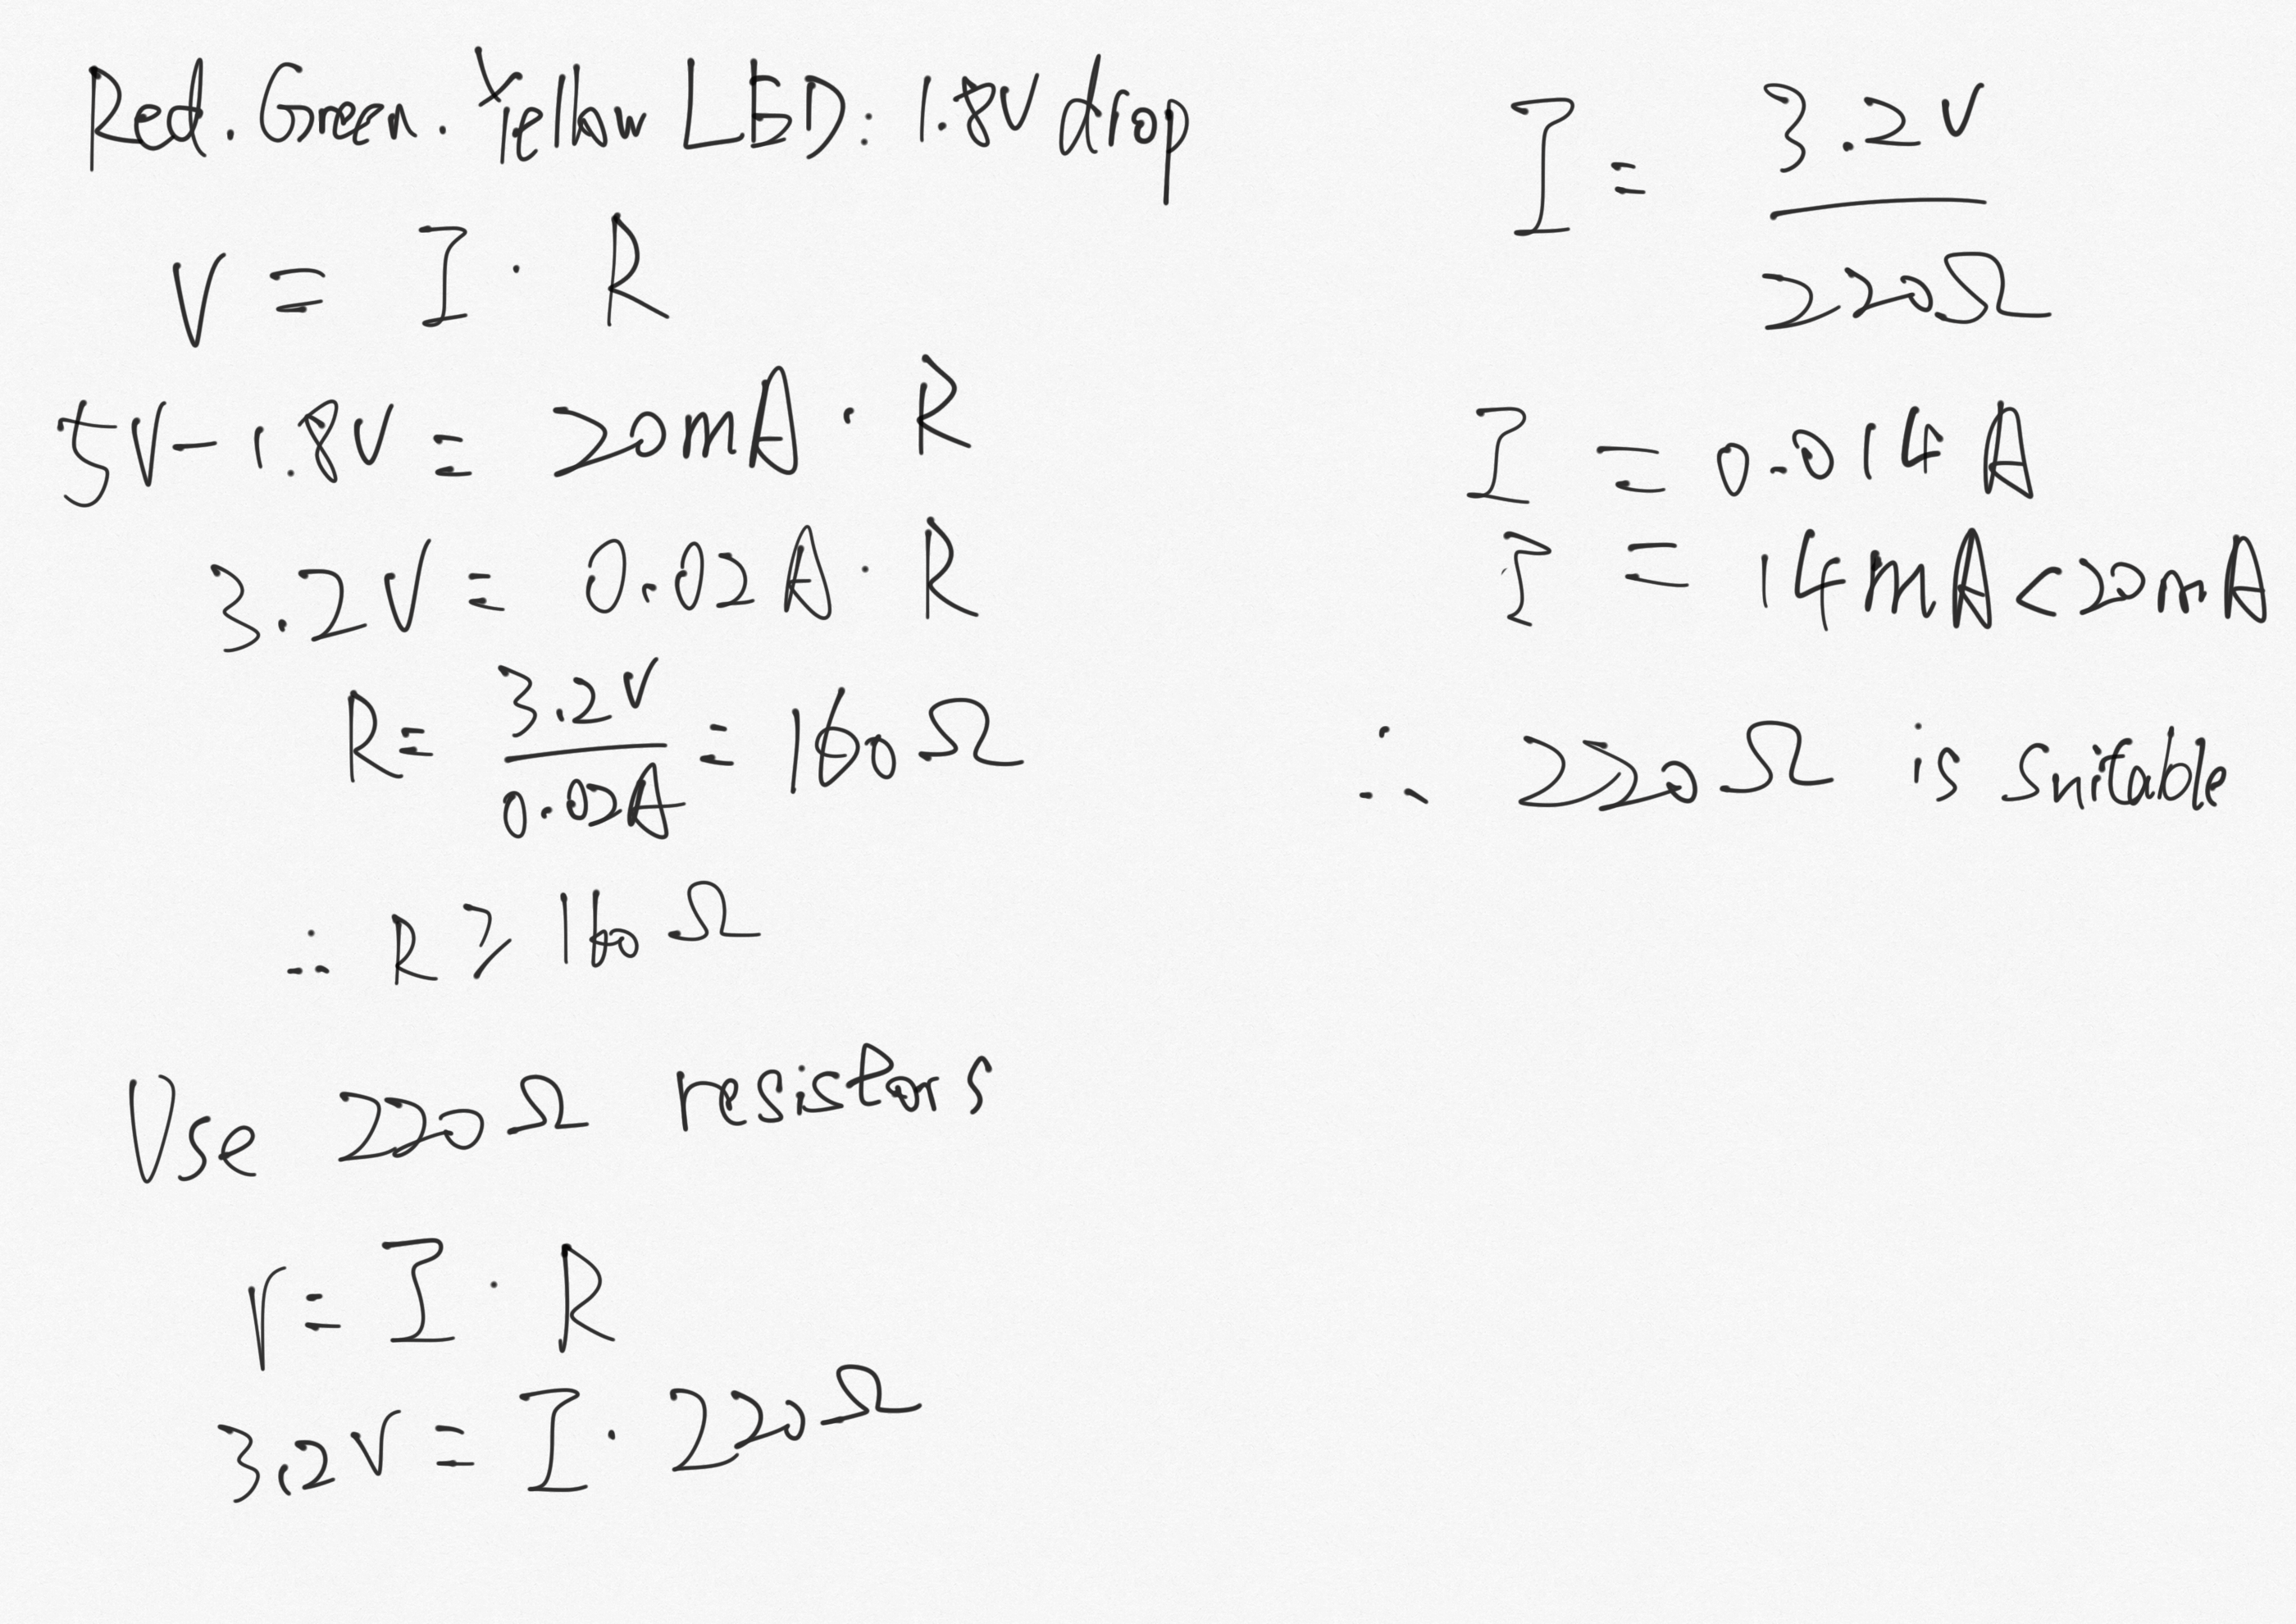 Red. Green. Yellow LED: 1.8V drop
V = I · R
5V - 1.8V = 20mA · R
3.2V = 0.02A · R
R = 3.2V / 0.02A = 160Ω
∴ R ≥ 160Ω
Use 220Ω resistors
V = I · R
3.2V = I · 220Ω
I = 3.2V / 220Ω
I = 0.014A
I = 14mA < 20mA
∴ 220Ω is suitable